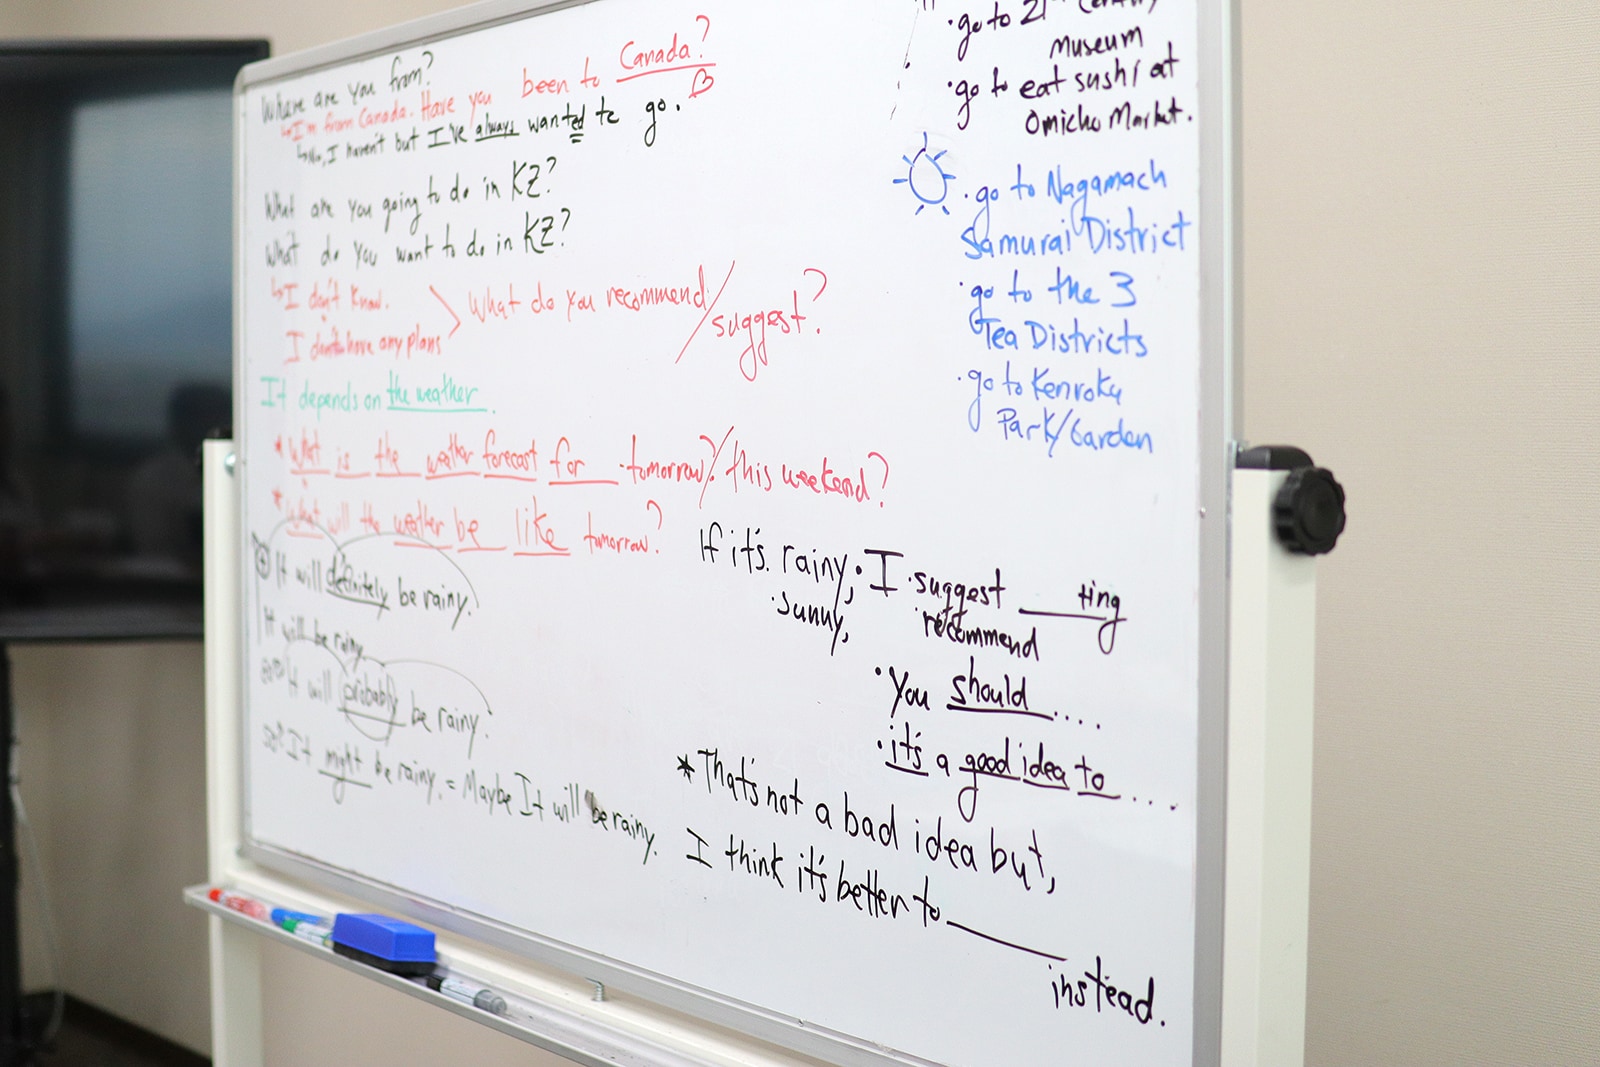 Where are you from?
I'm from Canada. Have you been to Canada?
No, I haven't but I've always wanted to go.
What are you going to do in KZ?
What do you want to do in KZ?
I don't know.
I don't have any plans
What do you recommend/
suggest?
It depends on the weather.
* What is the weather forecast for tomorrow?/this weekend?
* What will the weather be like tomorrow?
It will definitely be rainy.
It will be rainy.
It will probably be rainy.
50% It might be rainy. = Maybe It will be rainy.
· go to 21st Century
Museum
· go to eat sushi at
Omicho Market.
· go to Nagamach
Samurai District
· go to the 3
Tea Districts
· go to Kenroku
Park/Garden
If it's rainy, · I suggest ____ting
· sunny, recommend
· You should ....
· it's a good idea to ....
* That's not a bad idea but,
I think it's better to ____
instead.